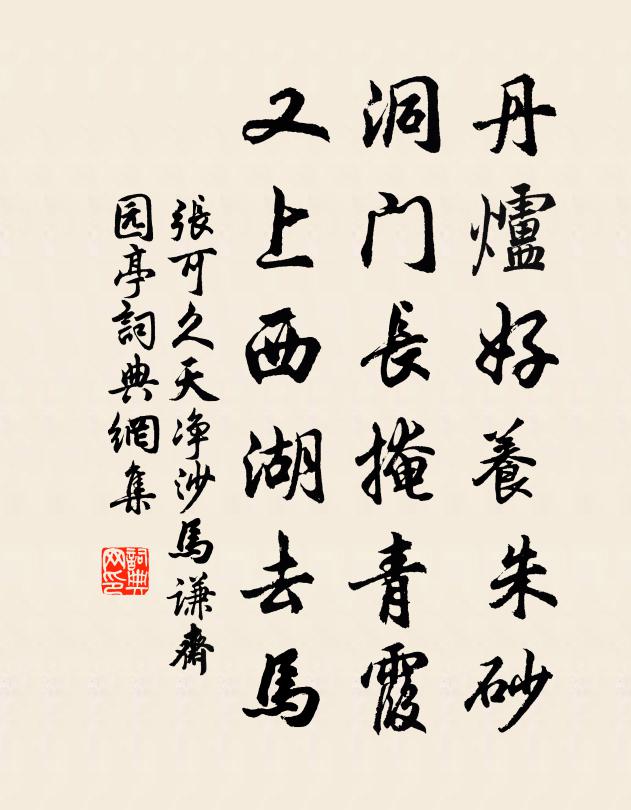 丹爐好養朱砂
洞门長掩青霞
又上西湖去馬
張可久天净沙馬謙齋
园亭詞典網集
詞典网印